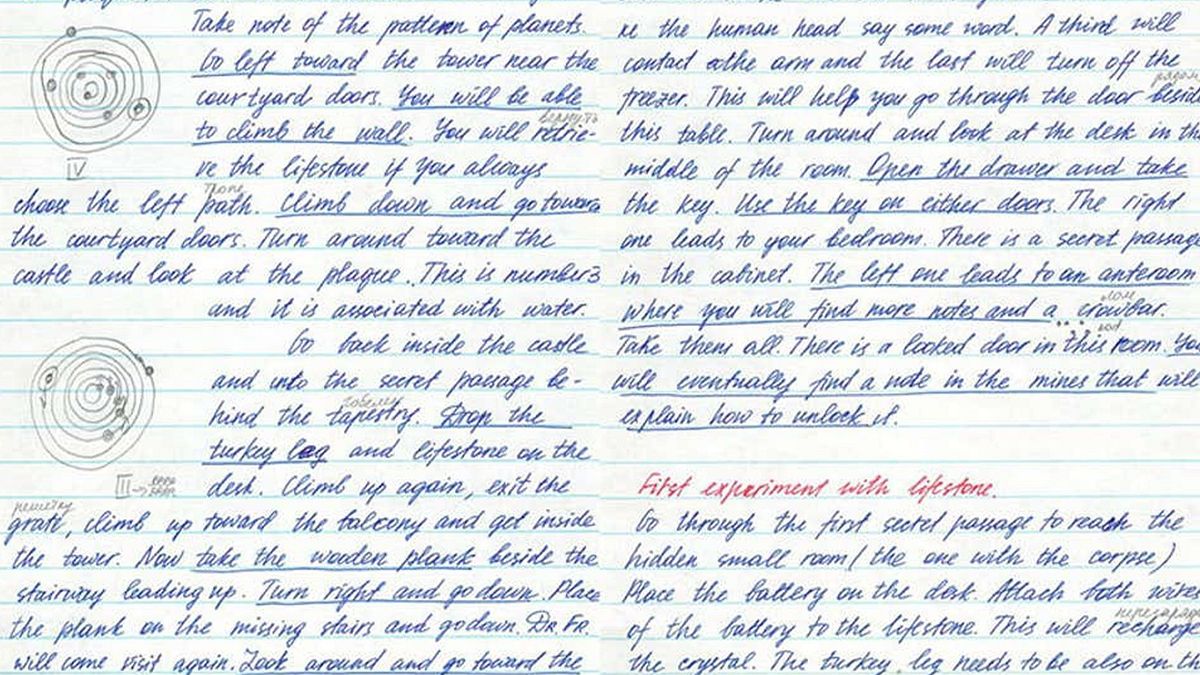 Take note of the pattern of planets.
Go left toward the tower near the
courtyard doors. You will be able
вернуть
to climb the wall. You will retrie-
IV
ve the lifestone if you always
тропе
choose the left path. Climb down and go toward
the courtyard doors. Turn around toward the
castle and look at the plague. This is number 3
and it is associated with water.
Go back inside the castle
and into the secret passage be-
гобелен
hind the tapestry. Drop the
turkey leg and lifestone on the
III →
desk. Climb up again, exit the
решетку
grate, climb up toward the balcony and get inside
the tower. Now take the wooden plank beside the
stairway leading up. Turn right and go down. Place
the plank on the missing stairs and go down. DR. FR.
will come visit again. Look around and go toward the
re the human head say some word. A third will
contact the arm and the last will turn off the
рядом
freezer. This will help you go through the door besid
this table. Turn around and look at the desk in th
middle of the room. Open the drawer and take
the key. Use the key on either doors. The right
one leads to your bedroom. There is a secret passag
in the cabinet. The left one leads to an anteroom
лом
where you will find more notes and a crowbar.
Take them all. There is a looked door in this room. You
will eventually find a note in the mines that will
explain how to unlock it.
First experiment with lifestone.
Go through the first secret passage to reach the
hidden small room (the one with the corpse)
Place the battery on the desk. Attach both wires
перезаряд
of the battery to the lifestone. This will recharge
the crystal. The turkey leg needs to be also on th